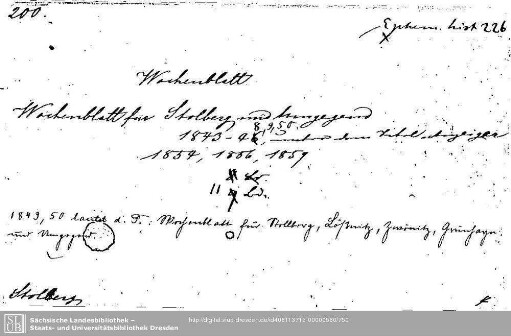 200.
Ephem. hist 226
Wochenblatt
Wochenblatt für Stolberg und Umgegend
8, 9, 50
1843-46, unter dem Titel Anzeiger
1854, 1856, 1859
11 Bd.
1849, 50 lautet d. T.: Wochenblatt für Stollberg, Lößnitz, Zwönitz, Grünhayn
und Umgegend.
Stolberg
Sächsische Landesbibliothek –
Staats- und Universitätsbibliothek Dresden